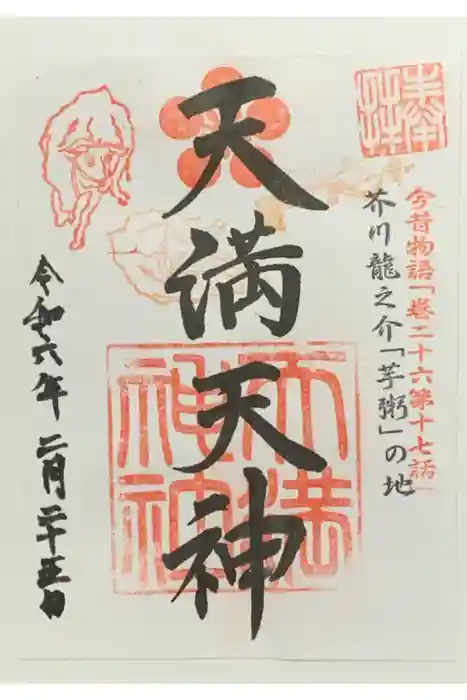 奉拝
今昔物語「巻二十六第十七話」
芥川龍之介「芋粥」の地
天満天神
天満
神社
令和六年二月二十五日